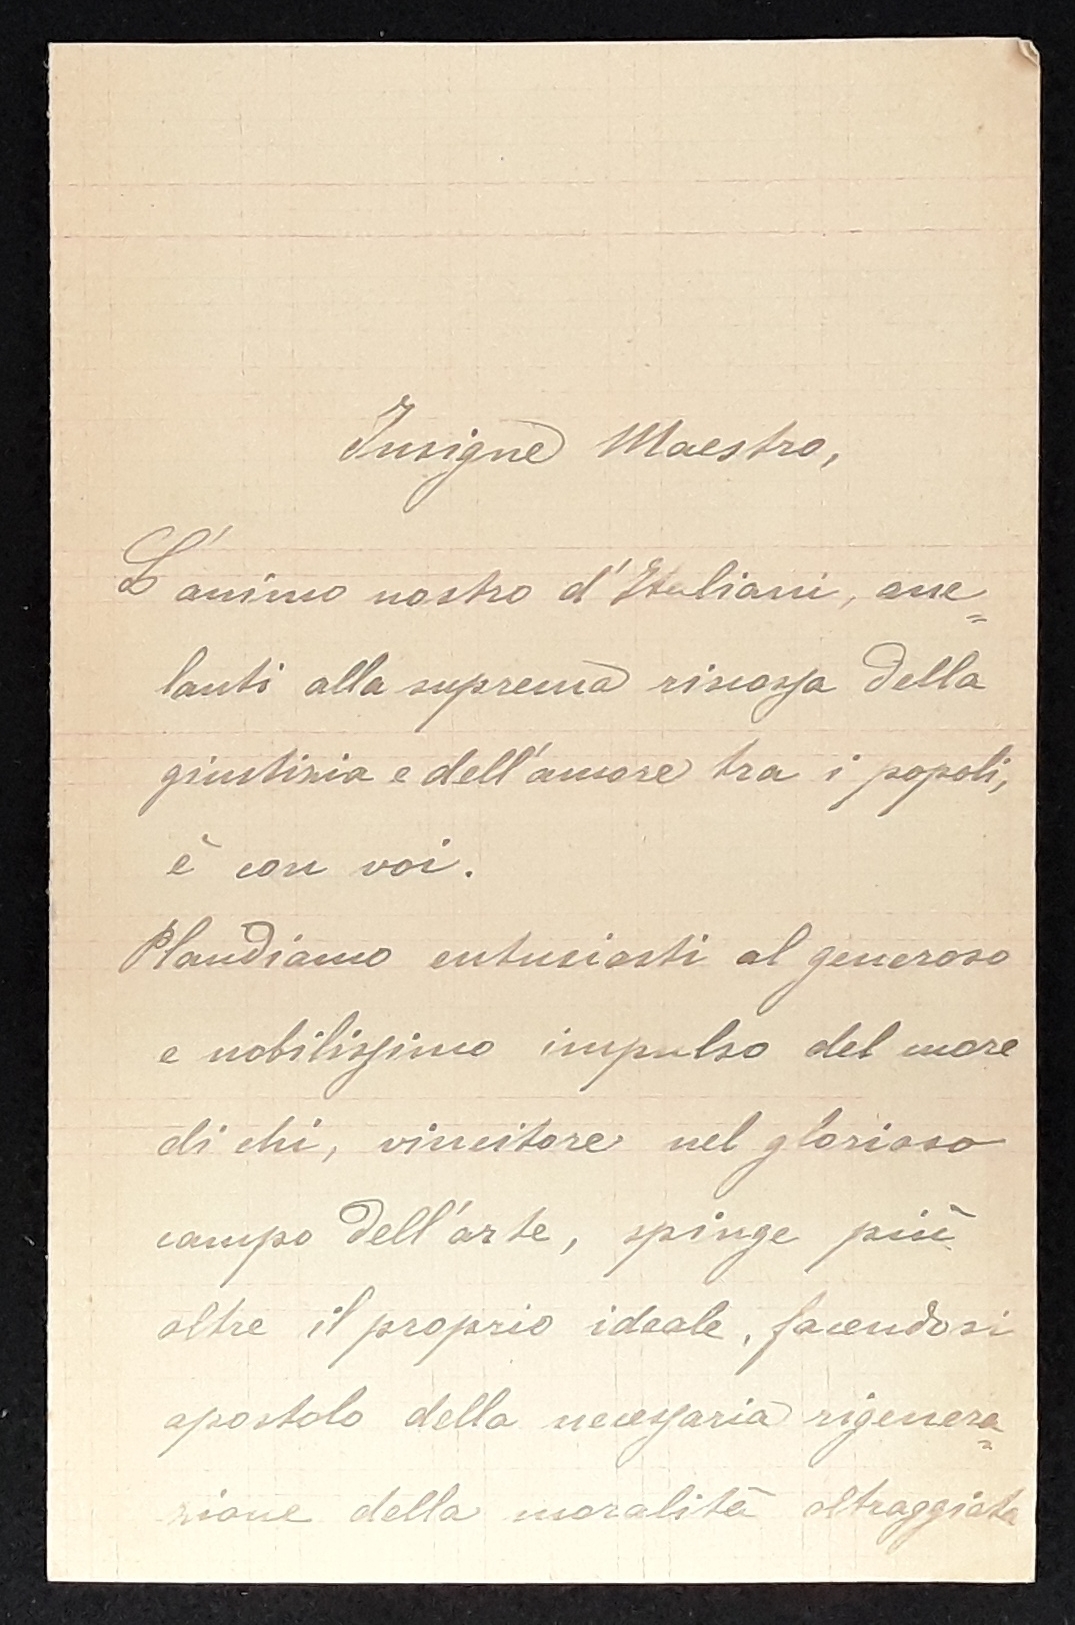 Insigne Maestro,
L'animo nostro d'Italiani, ane=
lanti alla suprema riscossa della
giustizia e dell'amore tra i popoli,
è con voi.
Plaudiamo entusiasti al generoso
e nobilissimo impulso del cuore
di chi, vincitore nel glorioso
campo dell'arte, spinge più
oltre il proprio ideale, facendosi
apostolo della necessaria rigenera=
zione della moralità oltraggiata